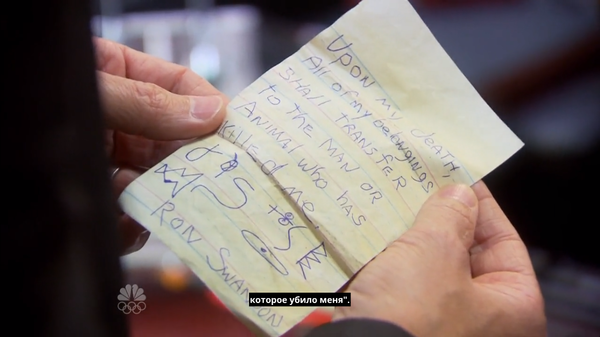 UPON MY DEATH,
All of my belongings
SHALL TRANSFER
TO THE MAN OR
ANIMAL WHO HAS
Killed me.
RON SWANSON
которое убило меня".